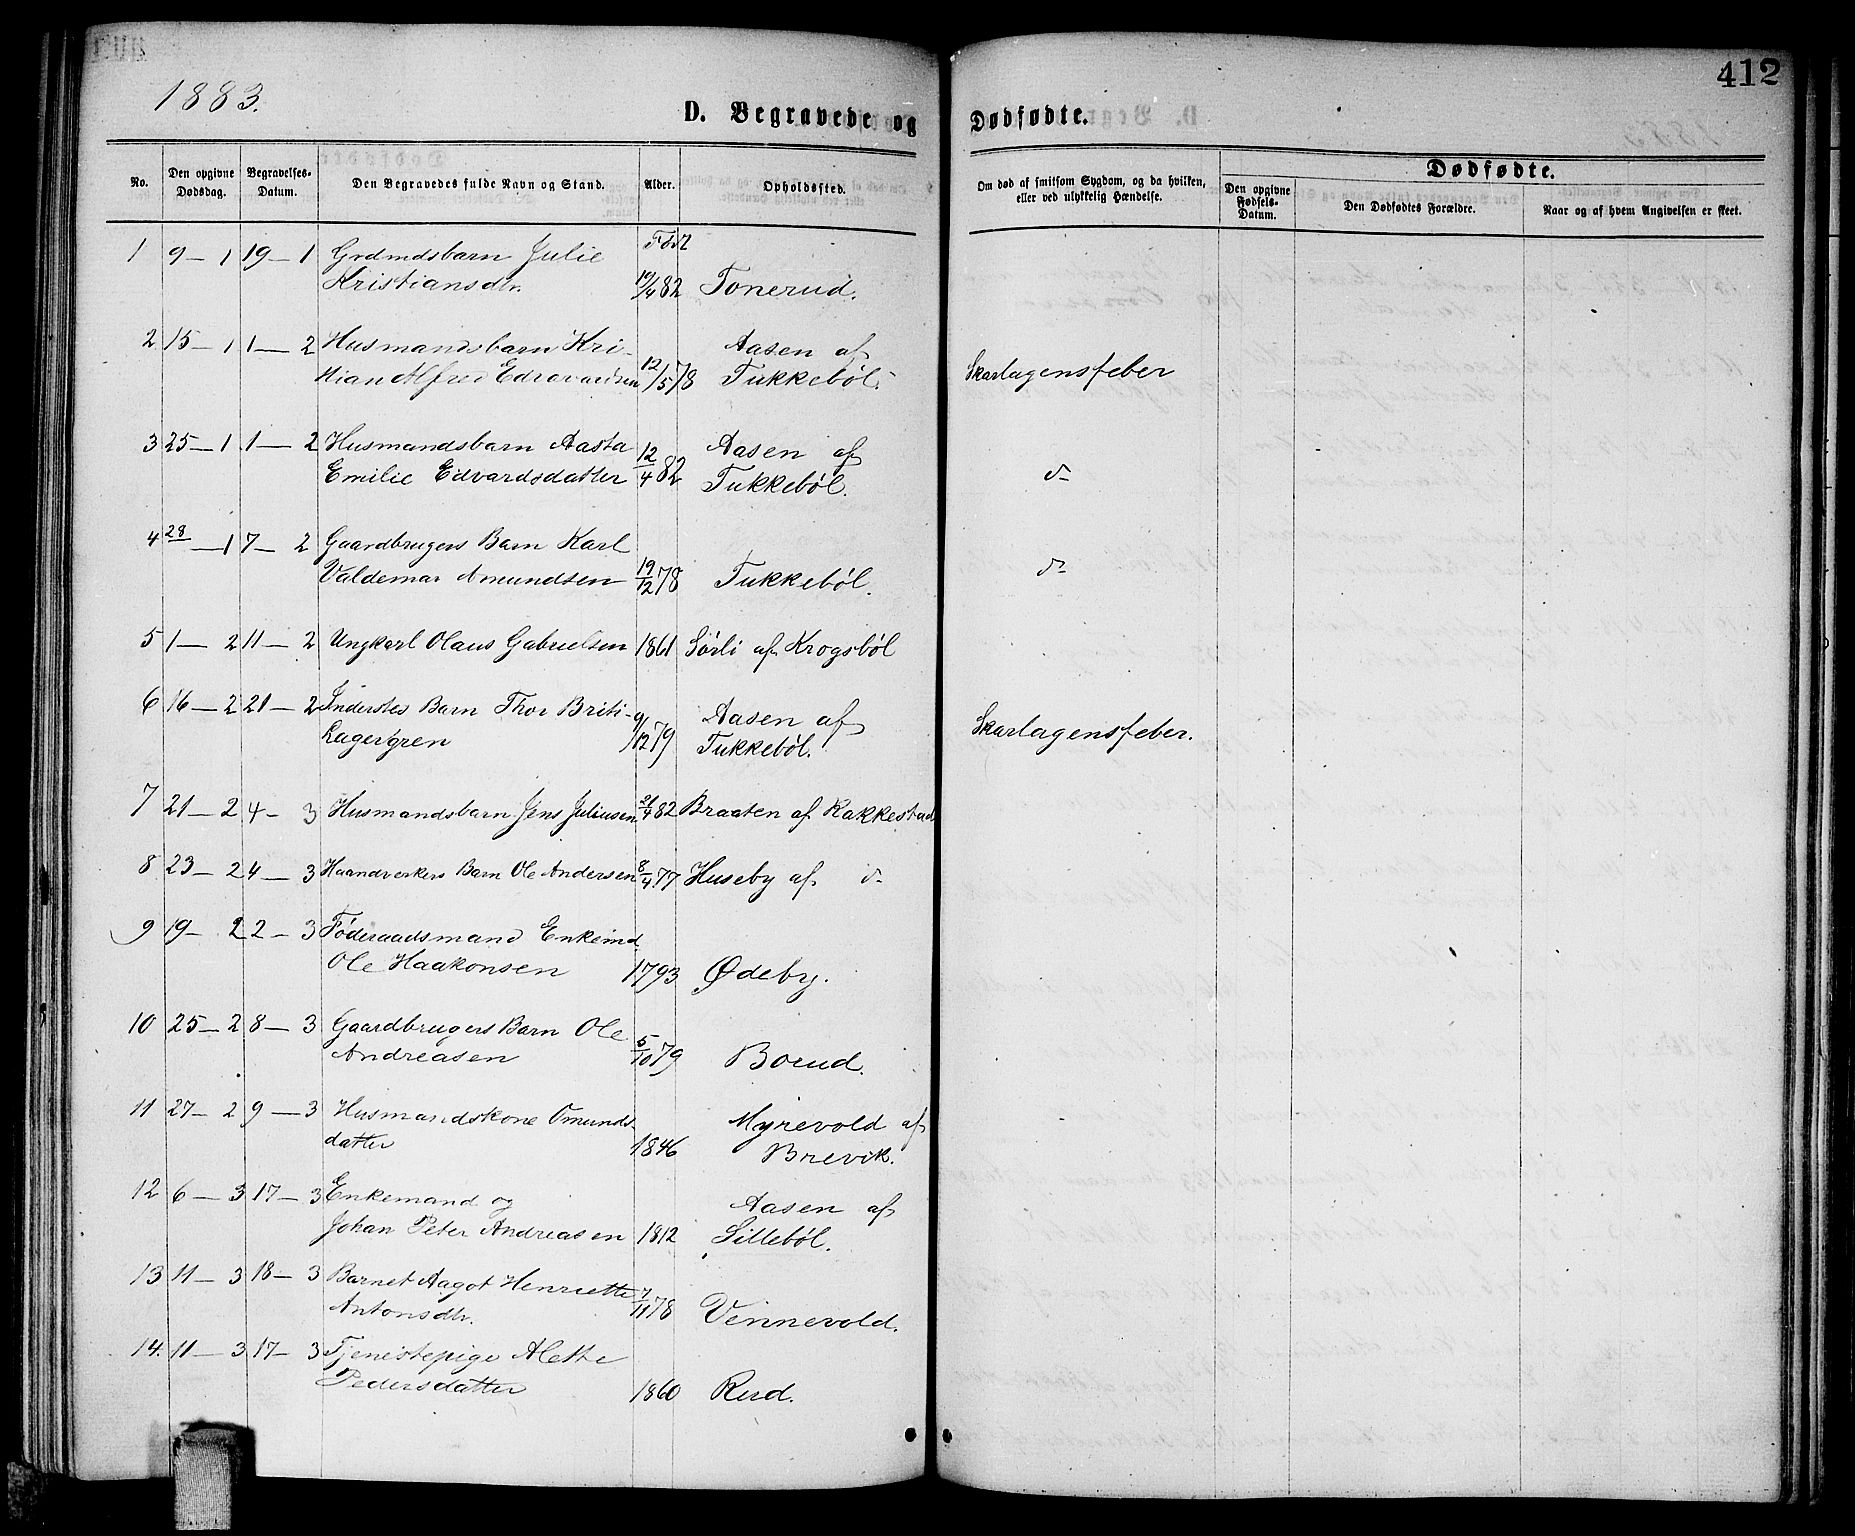 412
1883.
D. Begravede og Dødfødte.
No.
Den opgivne Dødsdag.
Begravelses-Datum.
Den Begravedes fulde Navn og Stand.
Alder.
Opholdssted.
Om død af smitsom Sygdom, og da hvilken, eller ved ulykkelig Hændelse.
Dødfødte.
Den opgivne Fødsels-Datum.
Den Dødfødtes Forældre.
Naar og af hvem Angivelsen er skeet.
1 9—1 19—1 Grdmdsbarn Julie
Kristiansdtr. 19/4 82 Tonerud.
2 15—1 1—2 Husmandsbarn Kri-
stian Alfred Edvardsen 12/5 78 Aasen af
Tukkebøl. Skarlagensfeber
3 25—1 1—2 Husmandsbarn Aasta
Emilie Edvardsdatter 12/4 82 Aasen af
Tukkebøl. do
4 28—1 7—2 Gaardbrugers Barn Karl
Valdemar Amundsen 19/12 78 Tukkebøl. do
5 1—2 11—2 Ungkarl Olaus Gabrielsen 1861 Sørli af Krogsbøl
6 16—2 21—2 Inderstes Barn Thor Briti-
Lagergren 9/12 79 Aasen af
Tukkebøl. Skarlagensfeber.
7 21—2 4—3 Husmandsbarn Jens Juliusen /4 82 Braaten af Rakkestad
8 23—2 4—3 Haandverkers Barn Ole Andersen 8/4 77 Huseby af do
9 19—2 2—3 Føderaadsmand Enkemd.
Ole Haakonsen 1793 Ødeby.
10 25—2 8—3 Gaardbrugers Barn Ole
Andreasen 5/10 79 Borud.
11 27—2 9—3 Husmandskone Omunds-
datter 1846 Myrevold af
Brevik.
12 6—3 17—3 Enkemand og
Johan Peter Andreasen 1812 Aasen af
Sillebøl.
13 11—3 18—3 Barnet Aagot Henriette
Antonsdtr. 7/11 78 Vennevold.
14. 11—3 17—3 Tjenestepige Alette
Pedersdatter 1860 Rud.